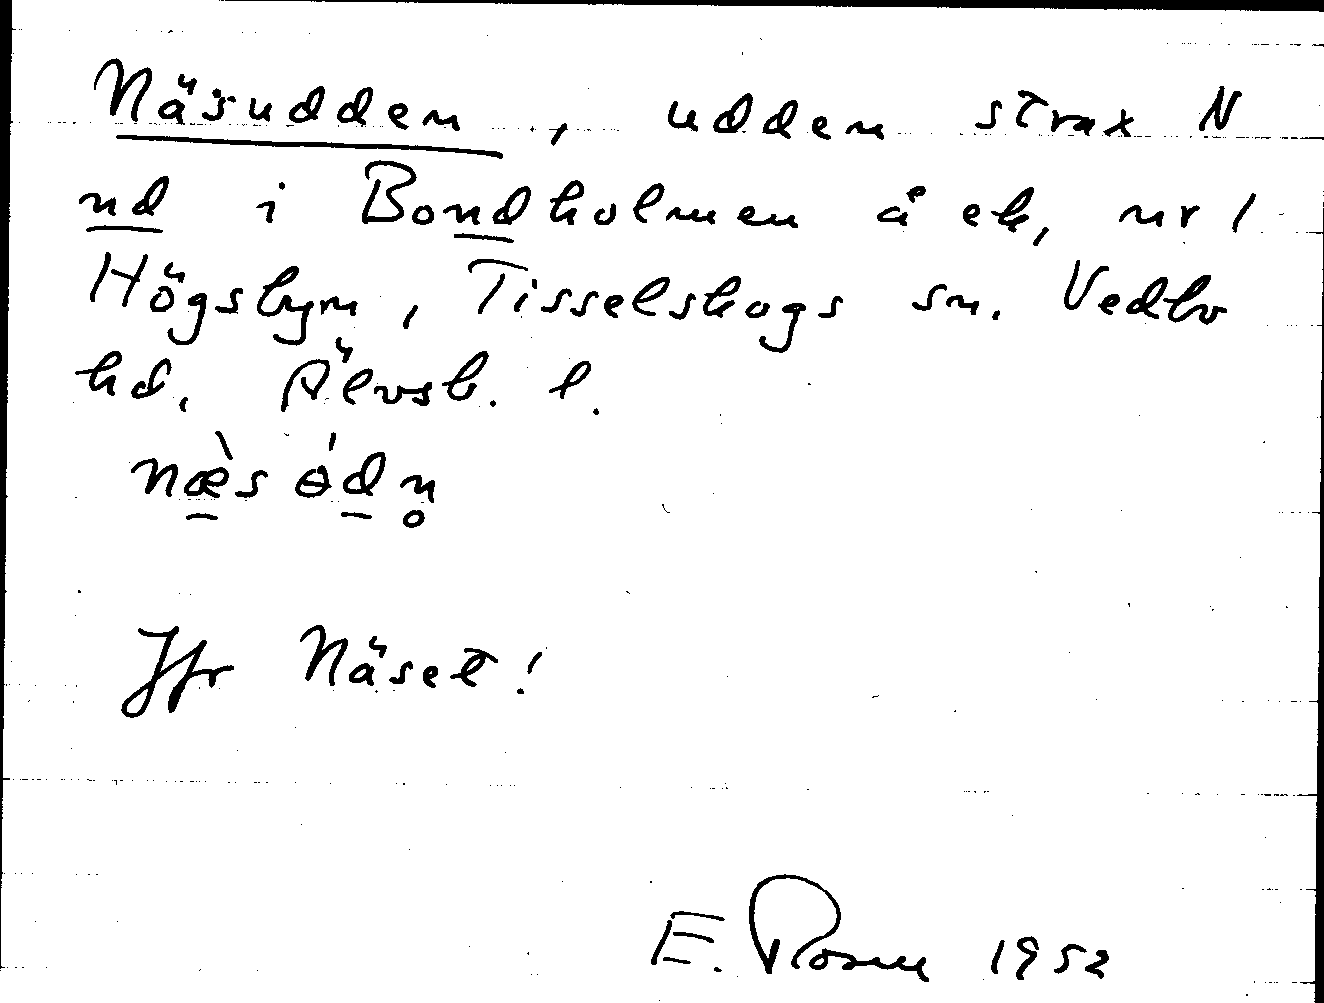 Näsudden, udden strax N
nd i Bondholmen å ek, nr 1
Högsbyn, Tisselskogs sn. Vedbo
hd. Älvsb. l.
næ̀s ɵ́dn̥
Jfr Näset!
E. Rosne 1952